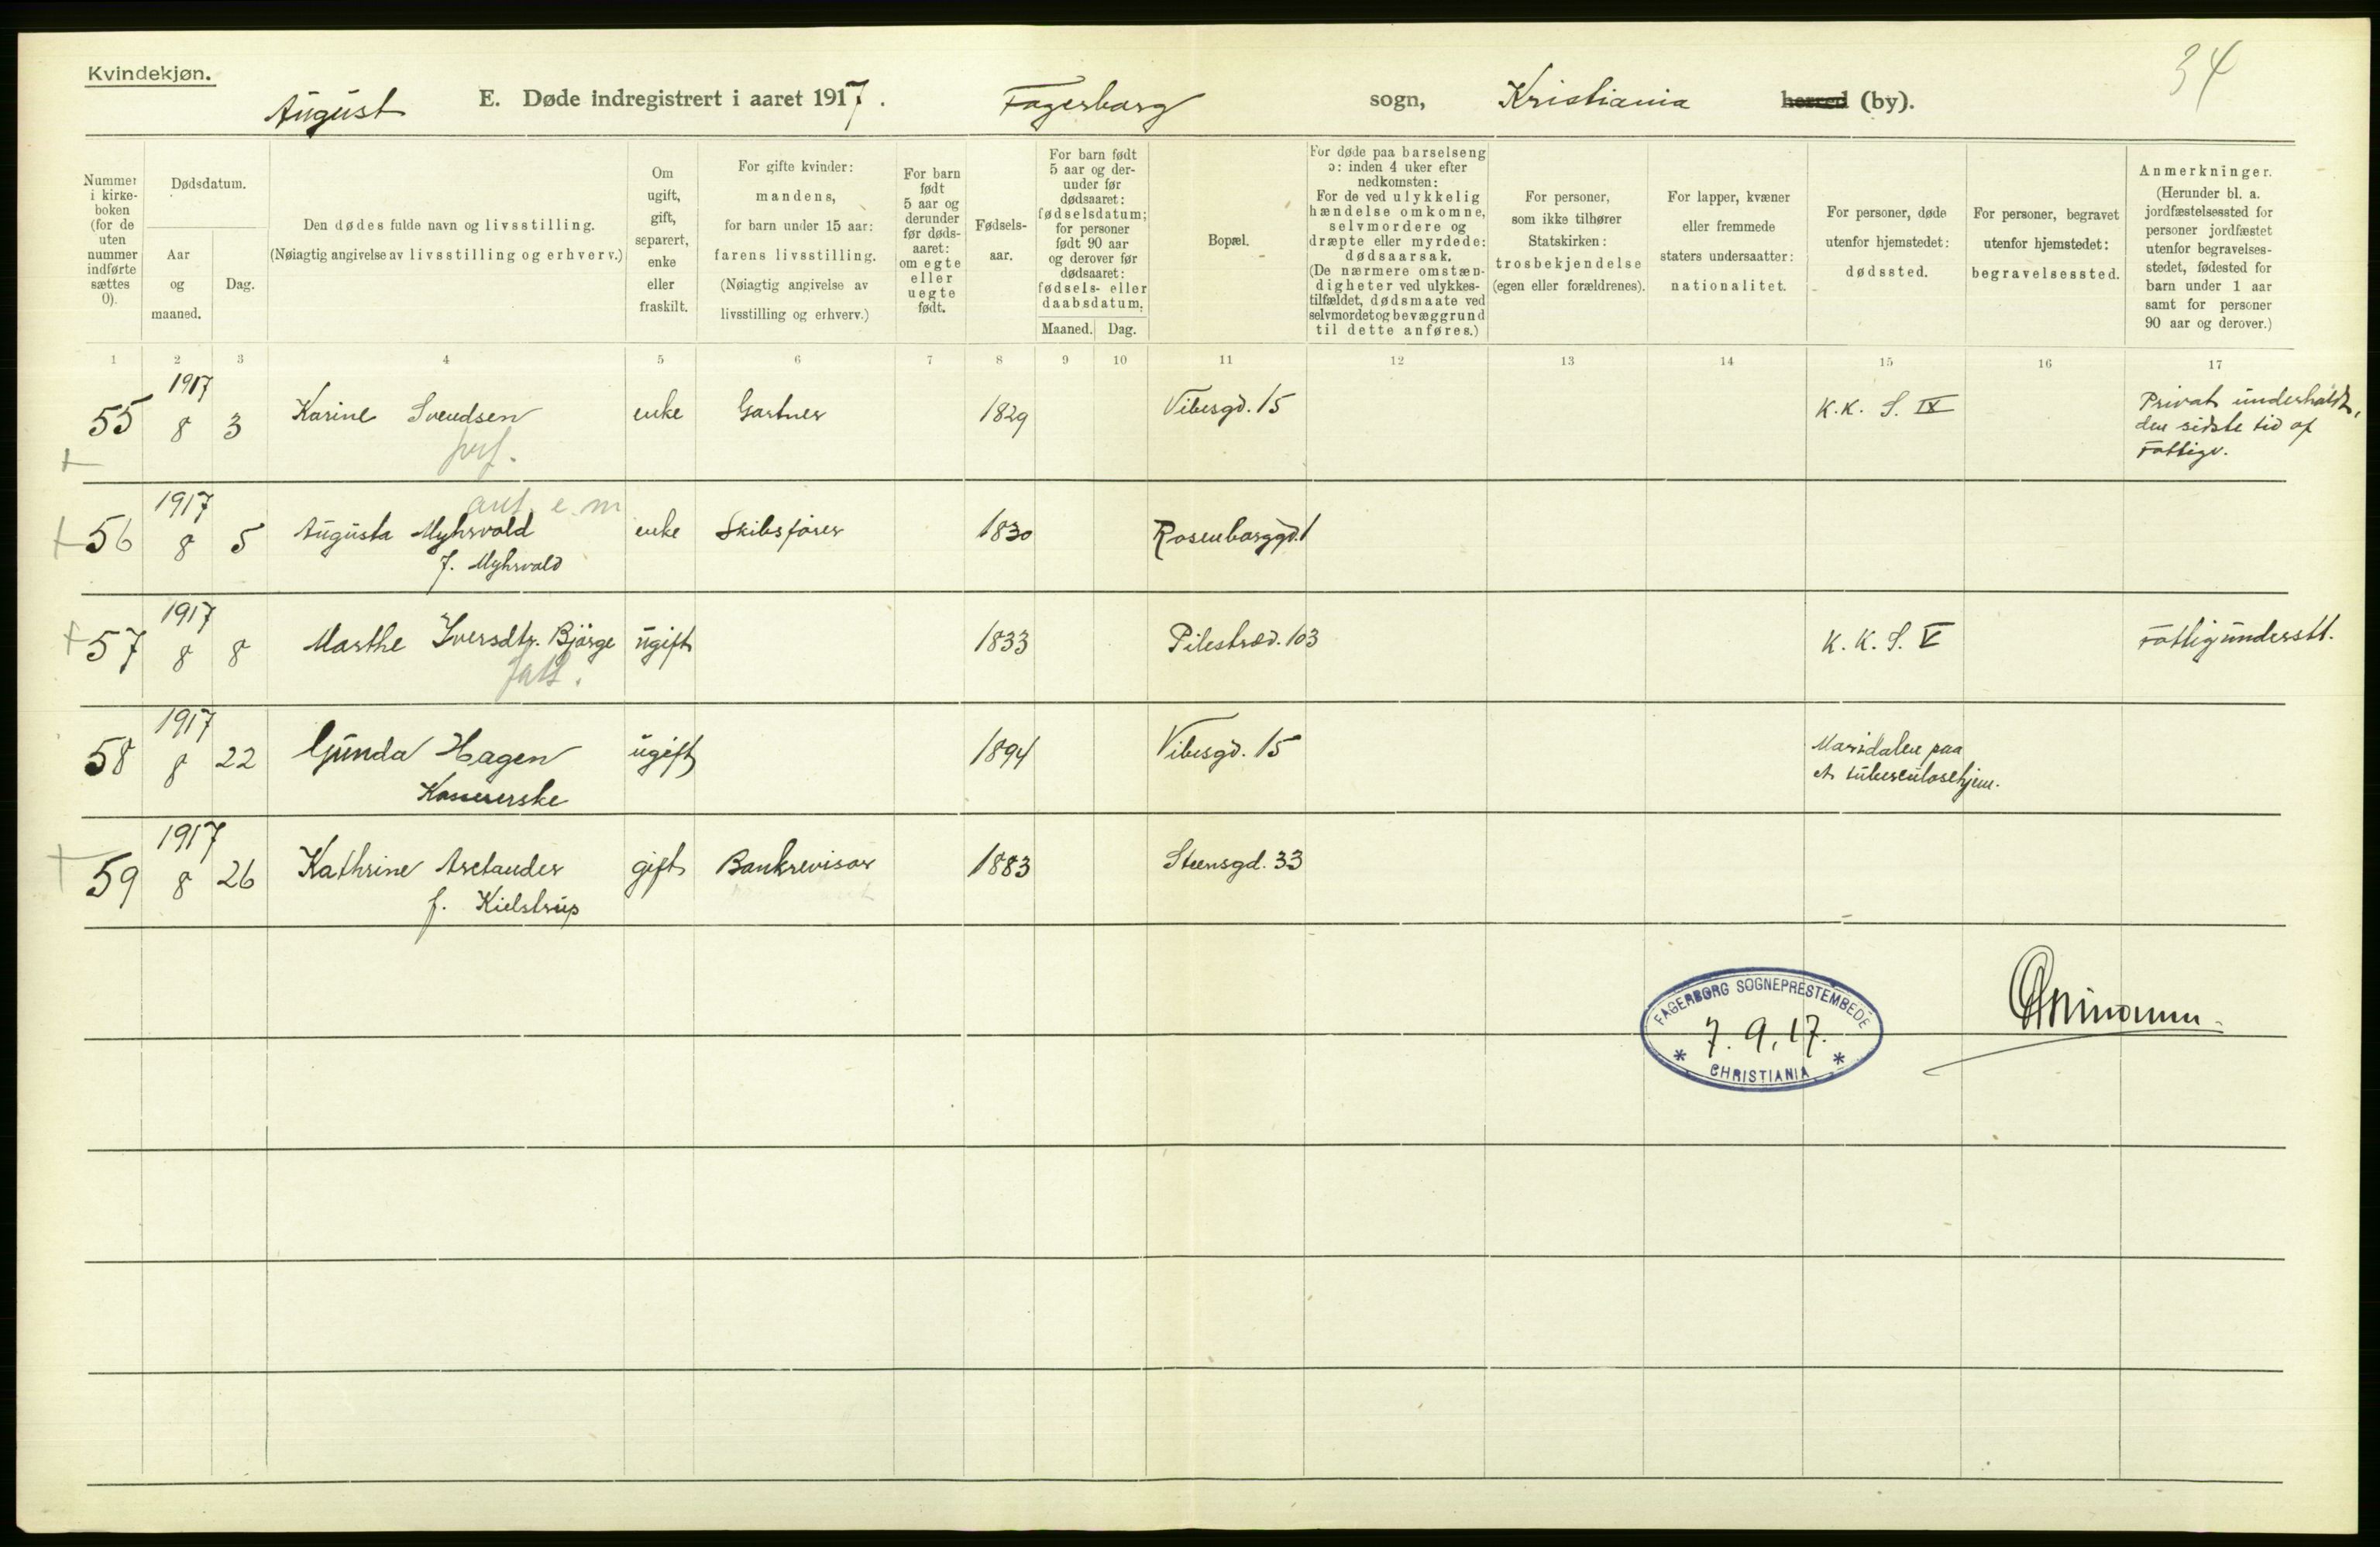 Kvindekjøn.
34
August E. Døde indregistrert i aaret 1917. Fagerborg sogn, Kristiania herred (by).
Nummer
i kirke-
boken
(for de
uten
nummer
indførte
sættes
0).
Dødsdatum.
Aar
og
maaned.
Dag.
Den dødes fulde navn og livsstilling.
(Nøiagtig angivelse av livsstilling og erhverv.)
Om
ugift,
gift,
separert,
enke
eller
fraskilt.
For gifte kvinder:
mandens,
for barn under 15 aar:
farens livsstilling.
(Nøiagtig angivelse av
livsstilling og erhverv.)
For barn
født
5 aar og
derunder
før døds-
aaret:
om egte
eller
uegte
født.
Fødsels-
aar.
For barn født
5 aar og der-
under før
dødsaaret:
fødselsdatum;
for personer
født 90 aar
og derover før
dødsaaret:
fødsels- eller
daabsdatum.
Maaned. Dag.
Bopæl.
For døde paa barselseng
ɔ: inden 4 uker efter
nedkomsten:
For de ved ulykkelig
hændelse omkomne,
selvmordere og
dræpte eller myrdede:
dødsaarsak.
(De nærmere omstæn-
digheter ved ulykkes-
tilfældet, dødsmaate ved
selvmordet og bevæggrund
til dette anføres.)
For personer,
som ikke tilhører
Statskirken:
trosbekjendelse
(egen eller forældrenes).
For lapper, kvæner
eller fremmede
staters undersaatter:
nationalitet.
For personer, døde
utenfor hjemstedet:
dødssted.
For personer, begravet
utenfor hjemstedet:
begravelsessted.
Anmerkninger.
(Herunder bl. a.
jordfæstelsessted for
personer jordfæstet
utenfor begravelses-
stedet, fødested for
barn under 1 aar
samt for personer
90 aar og derover.)
1 2 3 4 5 6 7 8 9 10 11 12 13 14 15 16 17
1917
55 8 3 Karine Svendsen enke Gartner 1829 Vibesgd. 15 K.K. S. IX Privat underholdt,
den sidste tid af
Fattigv.
1917
56 8 5 Augusta Myhrvold enke Skibsfører 1830 Rosenborggd. 1
f. Myhrvold
1917
57 8 8 Marthe Iversdtr. Bjørge ugift 1833 Pilestræd. 103 K. K. S. V Fattigunderstt.
1917
58 8 22 Gunda Hagen ugift 1894 Vibesgd. 15 Maridalen paa
et tuberculosehjem.
1917
59 8 26 Kathrine Arelander gift Bankrevisor 1883 Steensgd. 33
f. Kielstrup
FAGERBORG SOGNEPRESTEMBEDE
7. 9. 17.
* CHRISTIANIA *